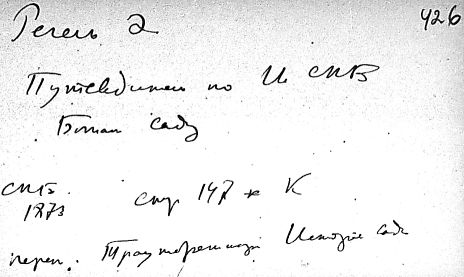 Регель Э
426
Путеводитель по И СПБ
Ботан саду
СПБ
1873
стр 147 * К
перел. Траутфеттера История сада